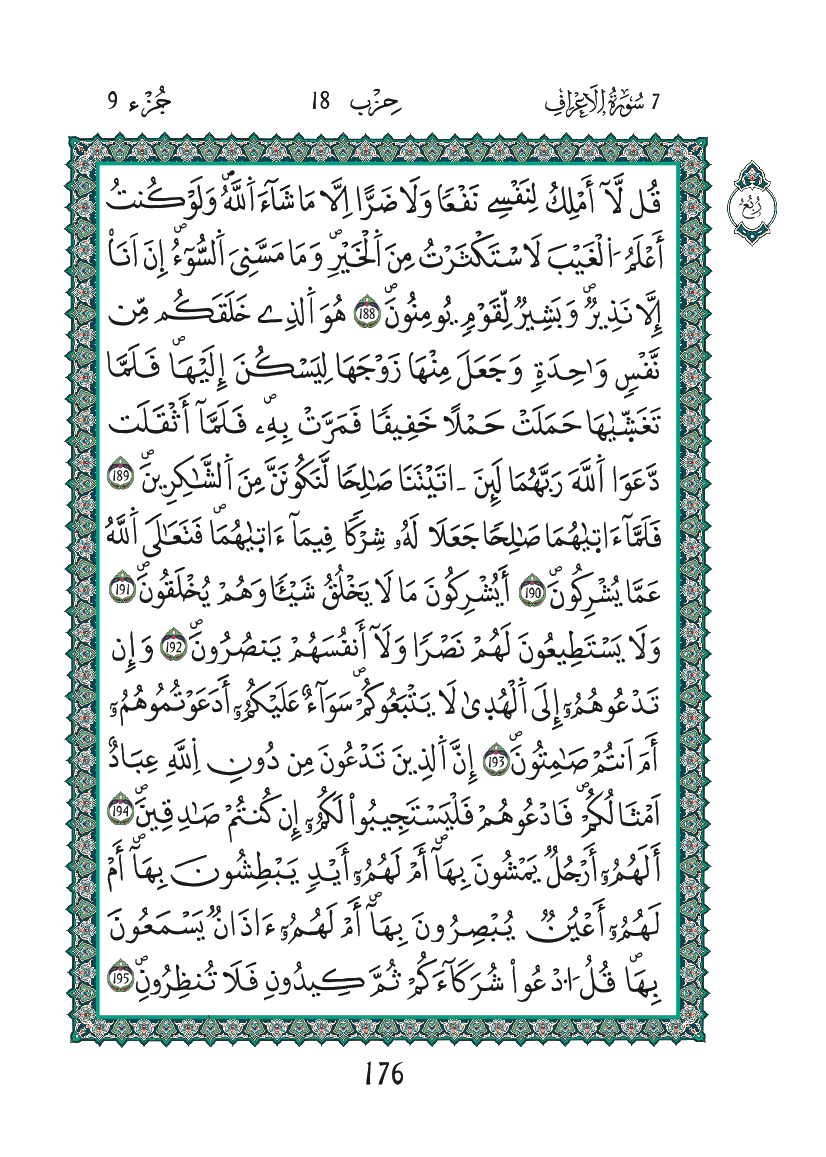 7 سُورَةُ الَاعْرَافِ حِزْب 18 جُزْء 9
رُبُع
قُل لَّآ أَمْلِكُ لِنَفْسِے نَفْعاٗ وَلَا ضَرًّا اِلَّا مَا شَآءَ اَ۬للَّهُۖ وَلَوْ كُنتُ
أَعْلَمُ اُ۬لْغَيْبَ لَاسْتَكْثَرْتُ مِنَ اَ۬لْخَيْرِۖ وَمَا مَسَّنِيَ اَ۬لسُّوٓءُۖ إِنَ اَنَآ
إِلَّا نَذِيرٞ وَبَشِيرٞ لِّقَوْمٖ يُومِنُونَۖ 188 هُوَ اَ۬لذِے خَلَقَكُم مِّن
نَّفْسٖ وَٰحِدَةٖ وَجَعَلَ مِنْهَا زَوْجَهَا لِيَسْكُنَ إِلَيْهَاۖ فَلَمَّا
تَغَشّ۪ىٰهَا حَمَلَتْ حَمْلاً خَفِيفاٗ فَمَرَّتْ بِهِۦۖ فَلَمَّآ أَثْقَلَت
دَّعَوَا اَ۬للَّهَ رَبَّهُمَا لَئِنَ اٰتَيْتَنَا صَٰلِحاٗ لَّنَكُونَنَّ مِنَ اَ۬لشَّٰكِرِينَۖ 189
فَلَمَّآ ءَات۪ىٰهُمَا صَٰلِحاٗ جَعَلَا لَهُۥ شِرْكاٗ فِيمَآ ءَات۪ىٰهُمَاۖ فَتَعَٰلَى اَ۬للَّهُ
عَمَّا يُشْرِكُونَۖ 190 أَيُشْرِكُونَ مَا لَا يَخْلُقُ شَيْـٔاٗ وَهُمْ يُخْلَقُونَۖ 191
وَلَا يَسْتَطِيعُونَ لَهُمْ نَصْراٗ وَلَآ أَنفُسَهُمْ يَنصُرُونَۖ 192 وَإِن
تَدْعُوهُمُۥٓ إِلَى اَ۬لْهُد۪ىٰ لَا يَتْبَعُوكُمْۖ سَوَآءٌ عَلَيْكُمُۥٓ أَدَعَوْتُمُوهُمُۥٓ
أَمَ اَنتُمْ صَٰمِتُونَۖ 193 إِنَّ اَ۬لذِينَ تَدْعُونَ مِن دُونِ اِ۬للَّهِ عِبَادٌ
اَمْثَالُكُمْۖ فَادْعُوهُمْ فَلْيَسْتَجِيبُواْ لَكُمُۥٓ إِن كُنتُمْ صَٰدِقِينَۖ 194
أَلَهُمُۥٓ أَرْجُلٞ يَمْشُونَ بِهَآۖ أَمْ لَهُمُۥٓ أَيْدٖ يَبْطِشُونَ بِهَآۖ أَمْ
لَهُمُۥٓ أَعْيُنٞ يُبْصِرُونَ بِهَآۖ أَمْ لَهُمُۥٓ ءَاذَانٞ يَسْمَعُونَ
بِهَاۖ قُلُ اُ۟دْعُواْ شُرَكَآءَكُمْ ثُمَّ كِيدُونِ فَلَا تُنظِرُونِۖ 195
176